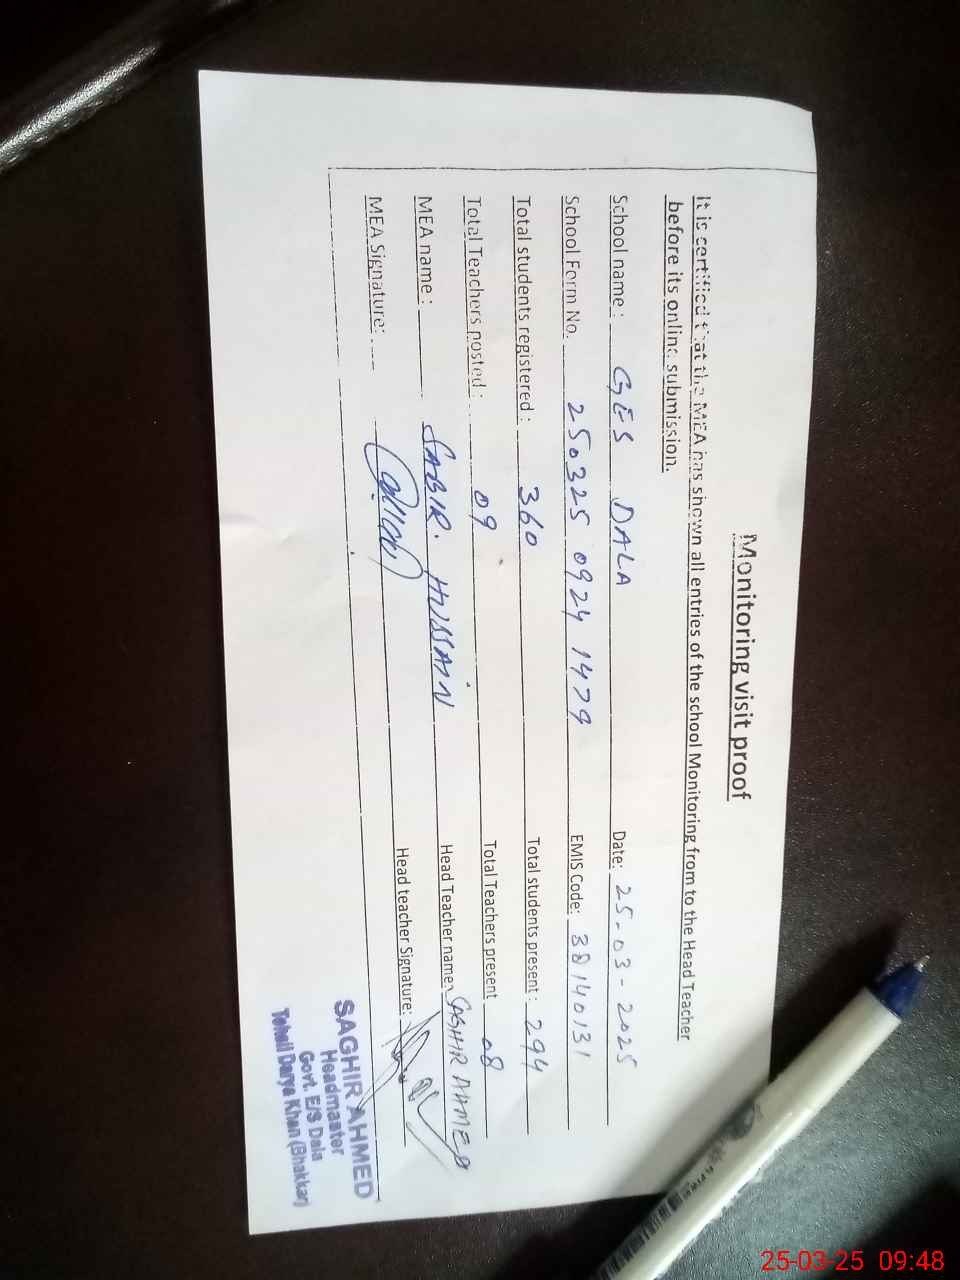 Monitoring visit proof
It is certified that the MEA has shown all entries of the school Monitoring from to the Head Teacher
before its online submission.
School name : GES DALA Date: 25-03-2025
School Form No. 250325 0924 1479 EMIS Code: 38140131
Total students registered : 360 Total students present : 294
Total Teachers posted : 09 Total Teachers present 08
MEA name : SABIR HUSSAIN Head Teacher name: SAGHIR AHMED
MEA Signature: Head teacher Signature:
SAGHIR AHMED
Headmaster
Govt. E/S Dala
Tehsil Darya Khan (Bhakkar)
25-03-25 09:48